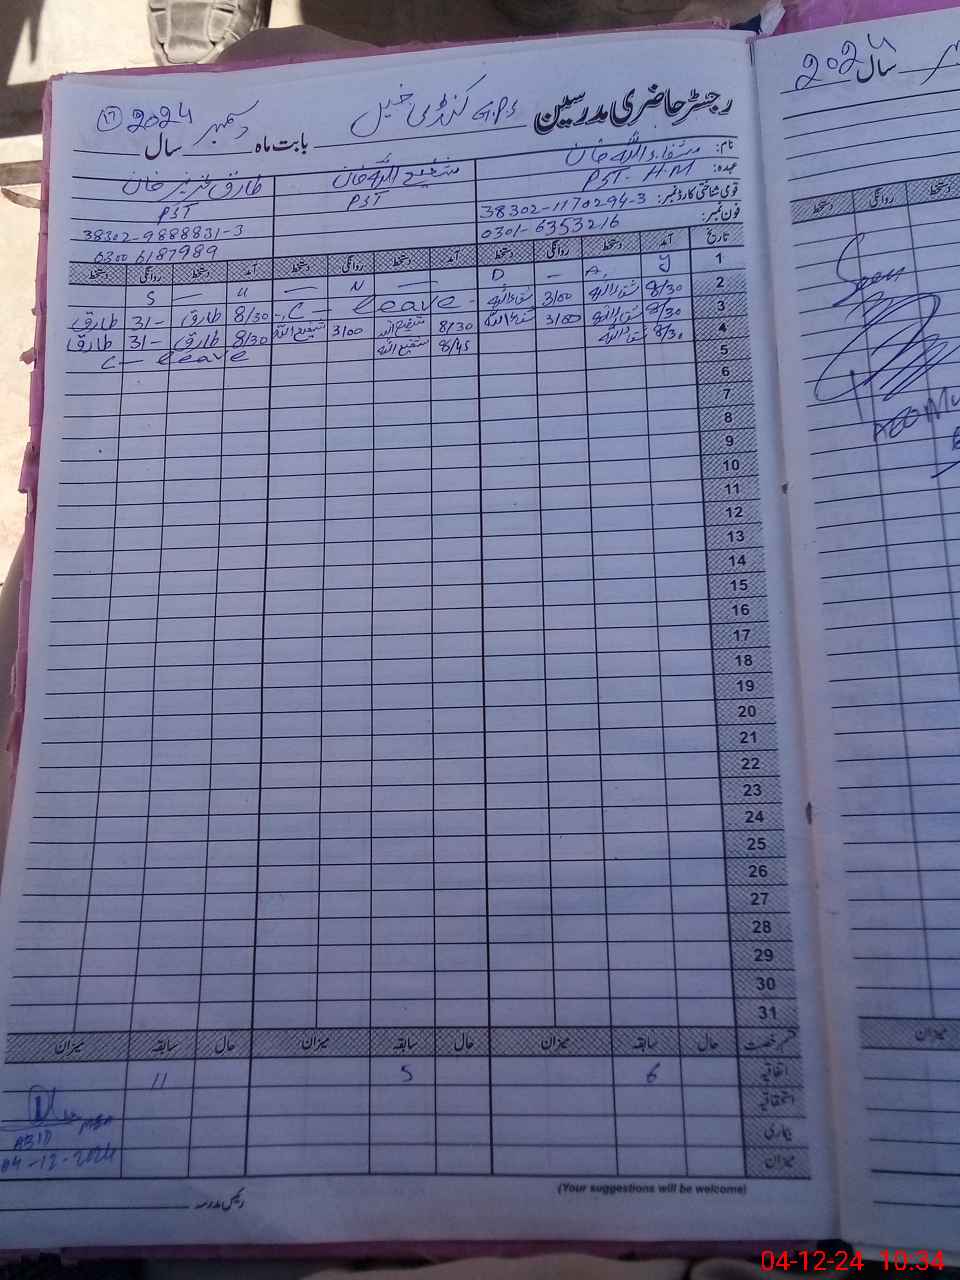 رجسٹر حاضری مدرسین GPS کنڈی خیل بابت ماہ دسمبر سال 2024 (17)
سال 2024
نام: شفاء اللہ خان شفیع اللہ خان طارق عزیز خان
عہدہ: PST. H.M PST PST
قومی شناختی کارڈ نمبر: 38302-1170294-3 38302-9888831-3
فون نمبر: 0301-6353216 0300 6187989
تاریخ آمد دستخط روانگی دستخط آمد دستخط روانگی دستخط آمد دستخط روانگی دستخط
روانگی دستخط
1 S — u — N — D — A, y
2 8/30 شفاء اللہ 3/00 شفاء اللہ C- leave - 8/30 طارق 31- طارق
3 8/30 شفاء اللہ 3/00 شفاء اللہ 8/30 شفیع اللہ 3/00 شفیع اللہ 8/30 طارق 31- طارق
4 8/30 شفاء اللہ 8/45 شفیع اللہ C- leave
5
6
7
8
9
10
11
12
13
14
15
16
17
18
19
20
21
22
23
24
25
26
27
28
29
30
31
Seen
قسم رخصت حال سابقہ میزان حال سابقہ میزان حال سابقہ میزان
میزان
اتفاقیہ 6 5 11
استحقاقیہ
بیماری
میزان
MEA
ABID
04-12-2024
(Your suggestions will be welcome)
رئیس مدرسہ
04-12-24 10:34